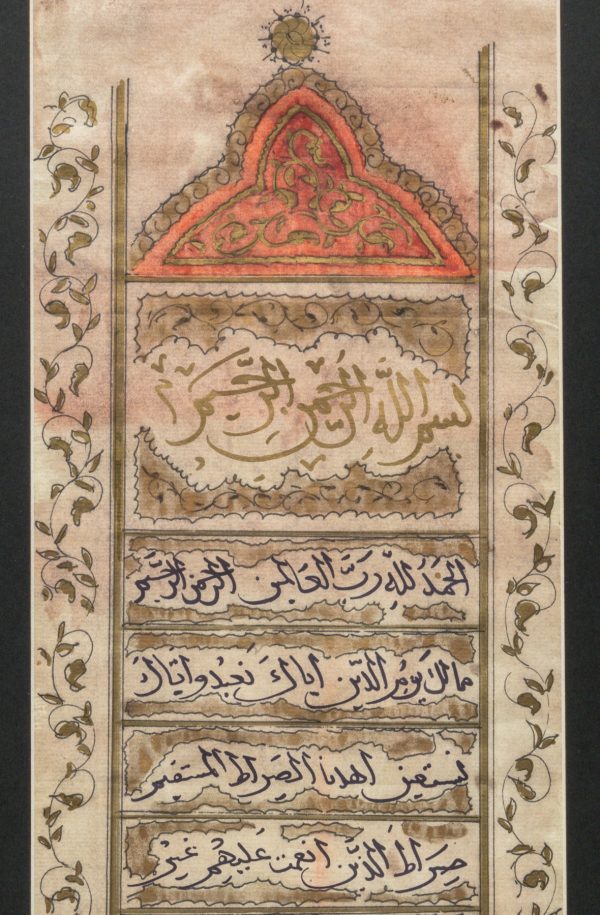 بسم اللَّهِ الرَّحْمَنِ الرَّحِيمِ
الحَمدُ لِلّهِ رَبّ العَالمين الرحمن الرَّحيم
مالك يَومِ الدّين اياكَ نَعبُدُ واياكَ
نستعين اهدنا الصِرَاطَ المستقيم
صِرَاطَ الَّذِيْنَ انعمتَ عَلَيهِمْ غَيْرِ